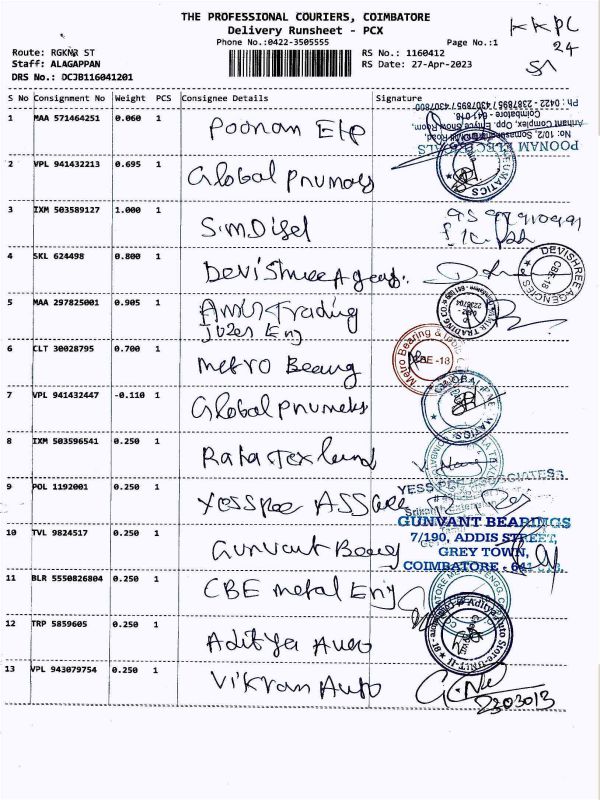 THE PROFESSIONAL COURIERS, COIMBATORE
Delivery Runsheet - PCX
Phone No.:0422-3505555
Page No.:1
KKPL
24
Route: RGKNR ST
RS No.: 1160412
Staff: ALAGAPPAN
RS Date: 27-Apr-2023
DRS No.: DCJB116041201
S No Consignment No Weight PCS Consignee Details Signature
1 MAA 571464251 0.060 1 Poonam Elp
POONAM ELECTRICALS
No. 10/2, Somasundara
Arihant Complex, Opp.
Coimbatore - 641 018.
Ph : 0422 - 2387895 / 4307895 / 4307800
2 VPL 941432213 0.695 1 Global pnumats
3 IXM 503589127 1.000 1 S.M.Disel
4 SKL 624498 0.800 1 Devishree Agency.
DEVISHREE AGENCIES
CBE-18
5 MAA 297825001 0.905 1 Amir Trading
Juzer Eng
AMIR TRADING CO.
6 CLT 30028795 0.700 1 Metro Beaung
Metro Bearing &
CBE -18
7 VPL 941432447 -0.110 1 Global pnumets
GLOBAL PNEUMATICS
8 IXM 503596541 0.250 1
9 POL 1192001 0.250 1
YESS PEE ASSOCIATESS
10 TVL 9824517 0.250 1 Gunvant Beaug
GUNVANT BEARINGS
7/190, ADDIS STREET,
GREY TOWN,
COIMBATORE - 641 018.
11 BLR 5550826804 0.250 1 CBE metal Eng
12 TRP 5859605 0.250 1 Aditya Auto
Aditya Auto Store-UNIT-II
13 VPL 943079754 0.250 1 Vikram Auto
2303013